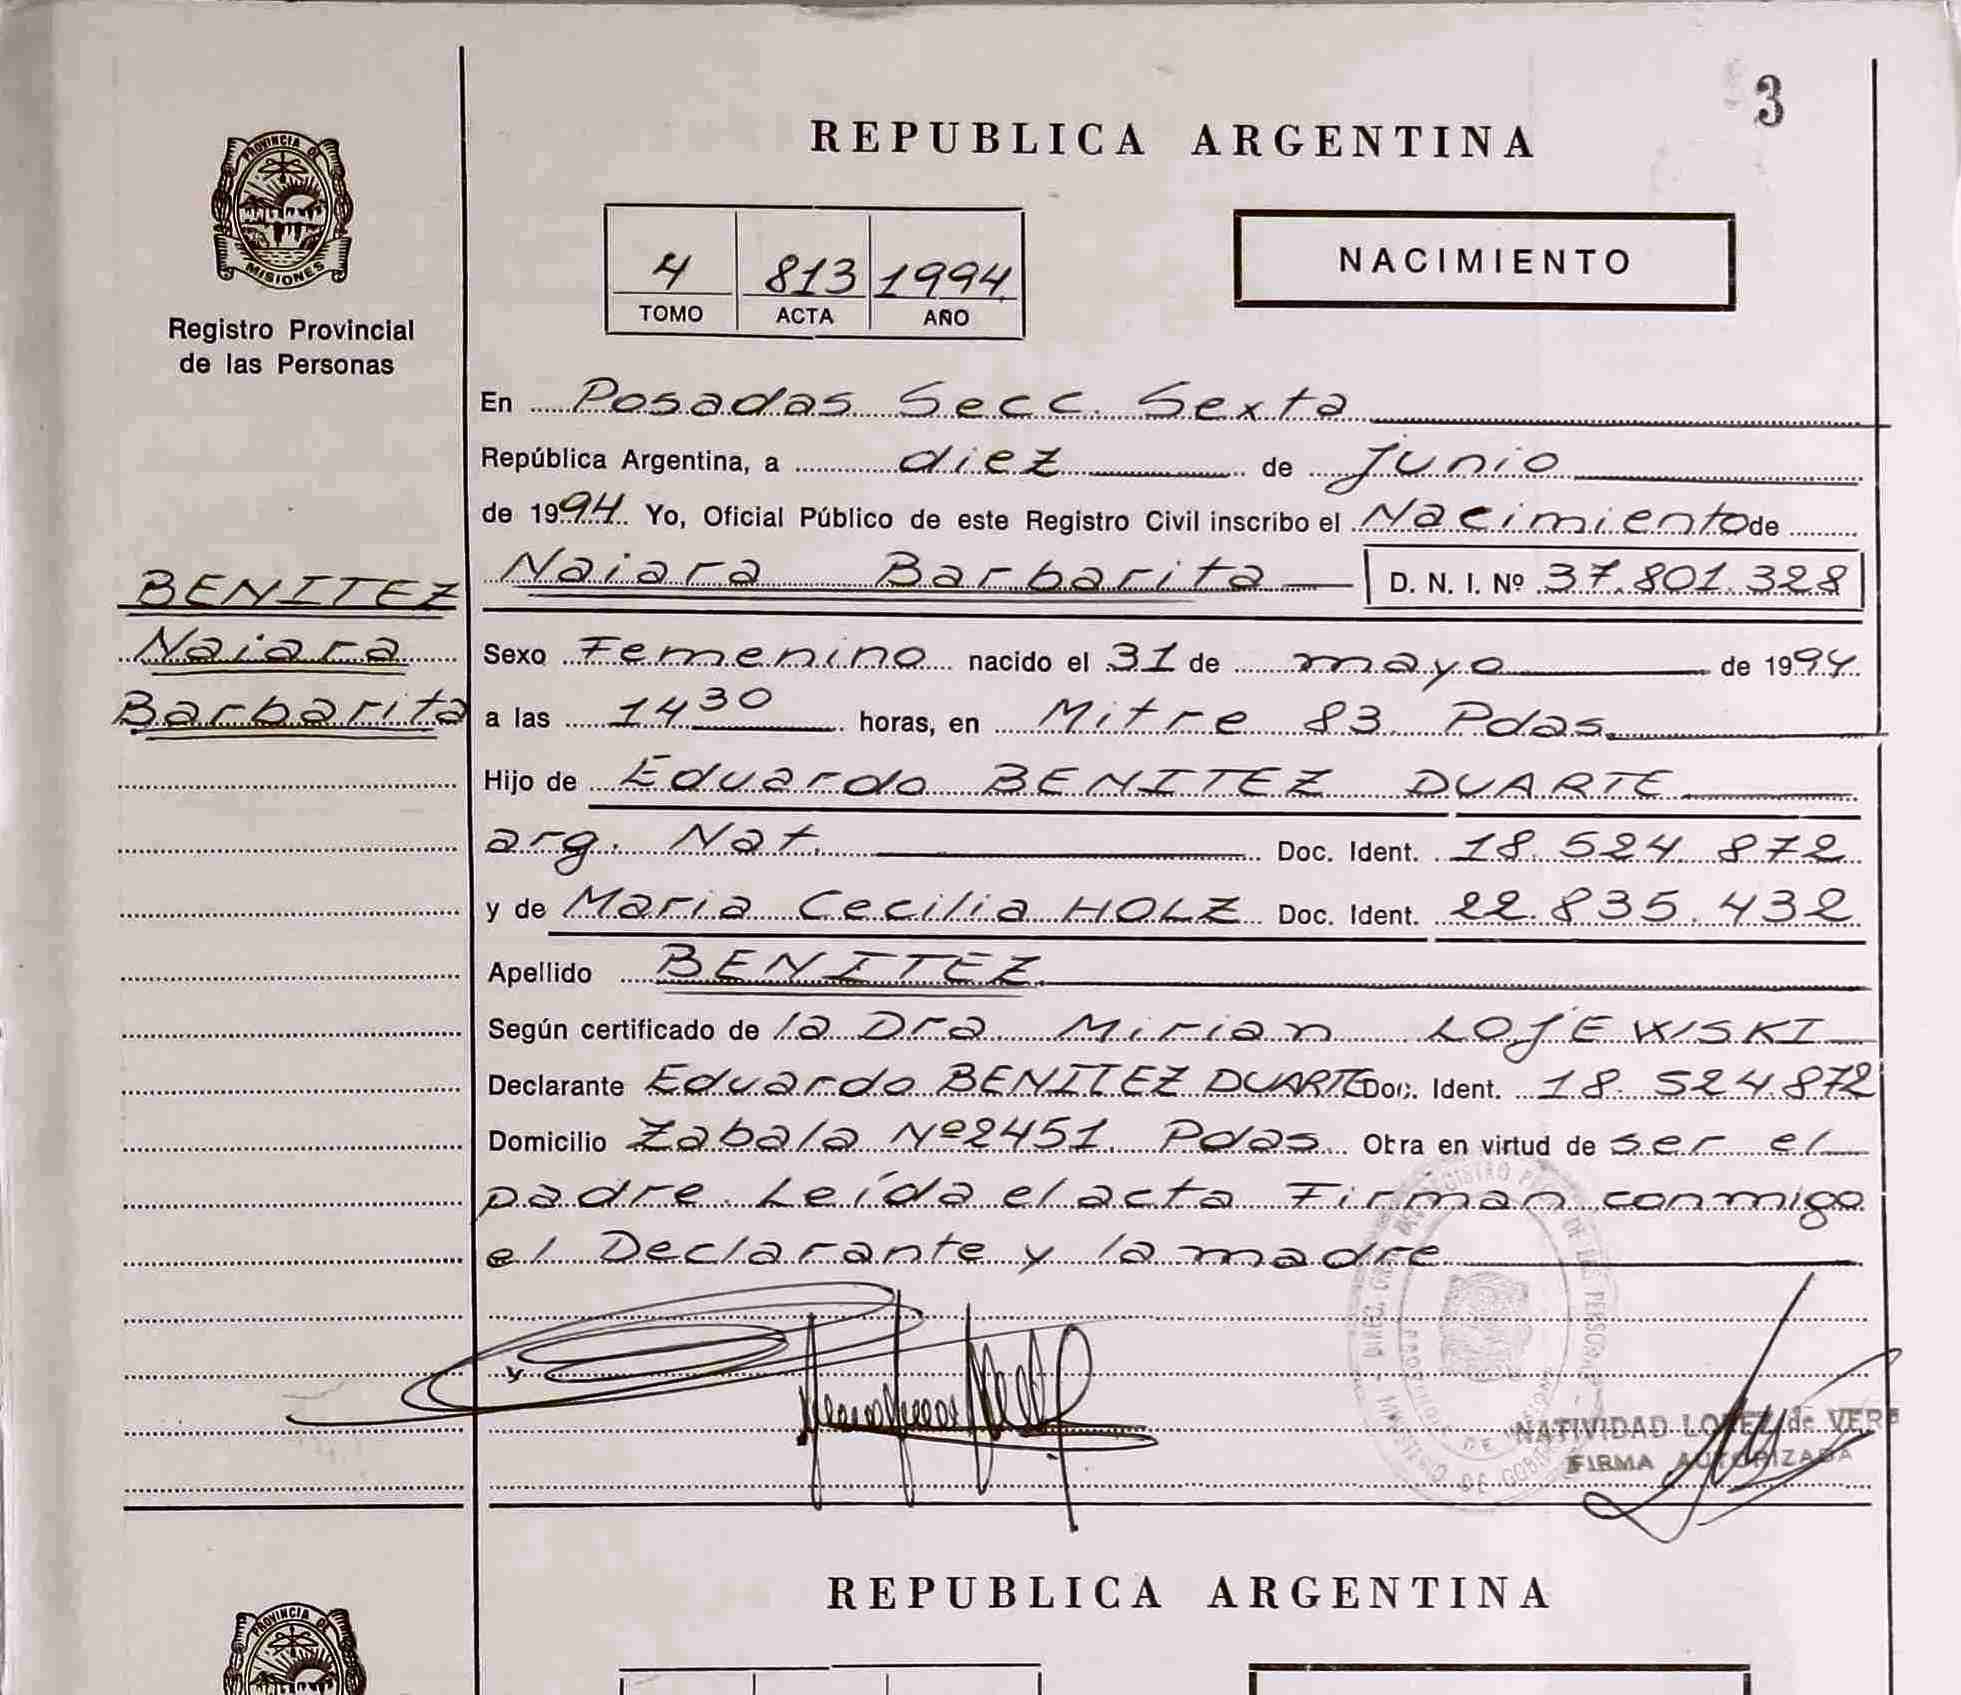 3
REPUBLICA ARGENTINA
PROVINCIA DE
MISIONES
Registro Provincial
de las Personas
4 813 1994
TOMO ACTA AÑO
NACIMIENTO
En Posadas Secc. Sexta
República Argentina, a diez de Junio
de 1994. Yo, Oficial Público de este Registro Civil inscribo el Nacimiento de
Naiara Barbarita D. N. I. Nº 37.801.328
BENITEZ
Naiara
Barbarita
Sexo Femenino nacido el 31 de mayo de 1994
a las 14 30 horas, en Mitre 83 Pdas.
Hijo de Eduardo BENITEZ DUARTE
arg. Nat. Doc. Ident. 18.524.872
y de Maria Cecilia HOLZ Doc. Ident. 22.835.432
Apellido BENITEZ
Según certificado de la Dra. Mirian LOJEWISKI
Declarante Eduardo BENITEZ DUARTE Doc. Ident. 18.524.872
Domicilio Zabala Nº 2451 Pdas. Obra en virtud de ser el
padre. Leída el acta Firman conmigo
el Declarante y la madre
NATIVIDAD LOPEZ de VER
FIRMA AUTORIZADA
REPUBLICA ARGENTINA
PROVINCIA DE